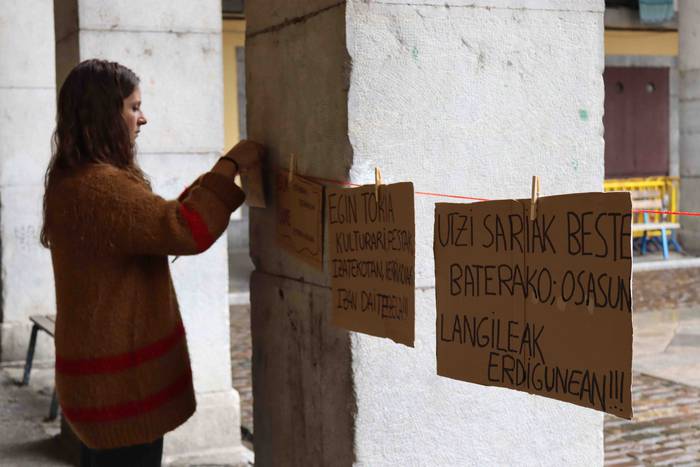 EGIN TOKIA
KULTURARI, FESTAK
IZATEKOTAN, HERRIKOIAK
IZAN DAITEZELA!!!
UTZI SARIAK BESTE
BATERAKO; OSASUN
LANGILEAK
ERDIGUNEAN!!!